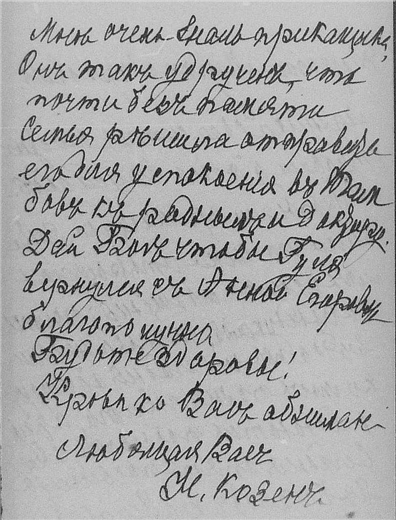 Мнѣ очень жаль прикащика,
Онъ такъ удрученъ, что
почти безъ памяти
Семья рѣшила отправить
его для успокоенія въ Там
бовъ къ роднымъ и доктору.
Дай Богъ чтобы Гуля
вернулся съ Анной Егоровн
благополучно
Будьте здоровы!
Крѣпко Васъ обнимаю
Любящая Васъ
М. Козенъ